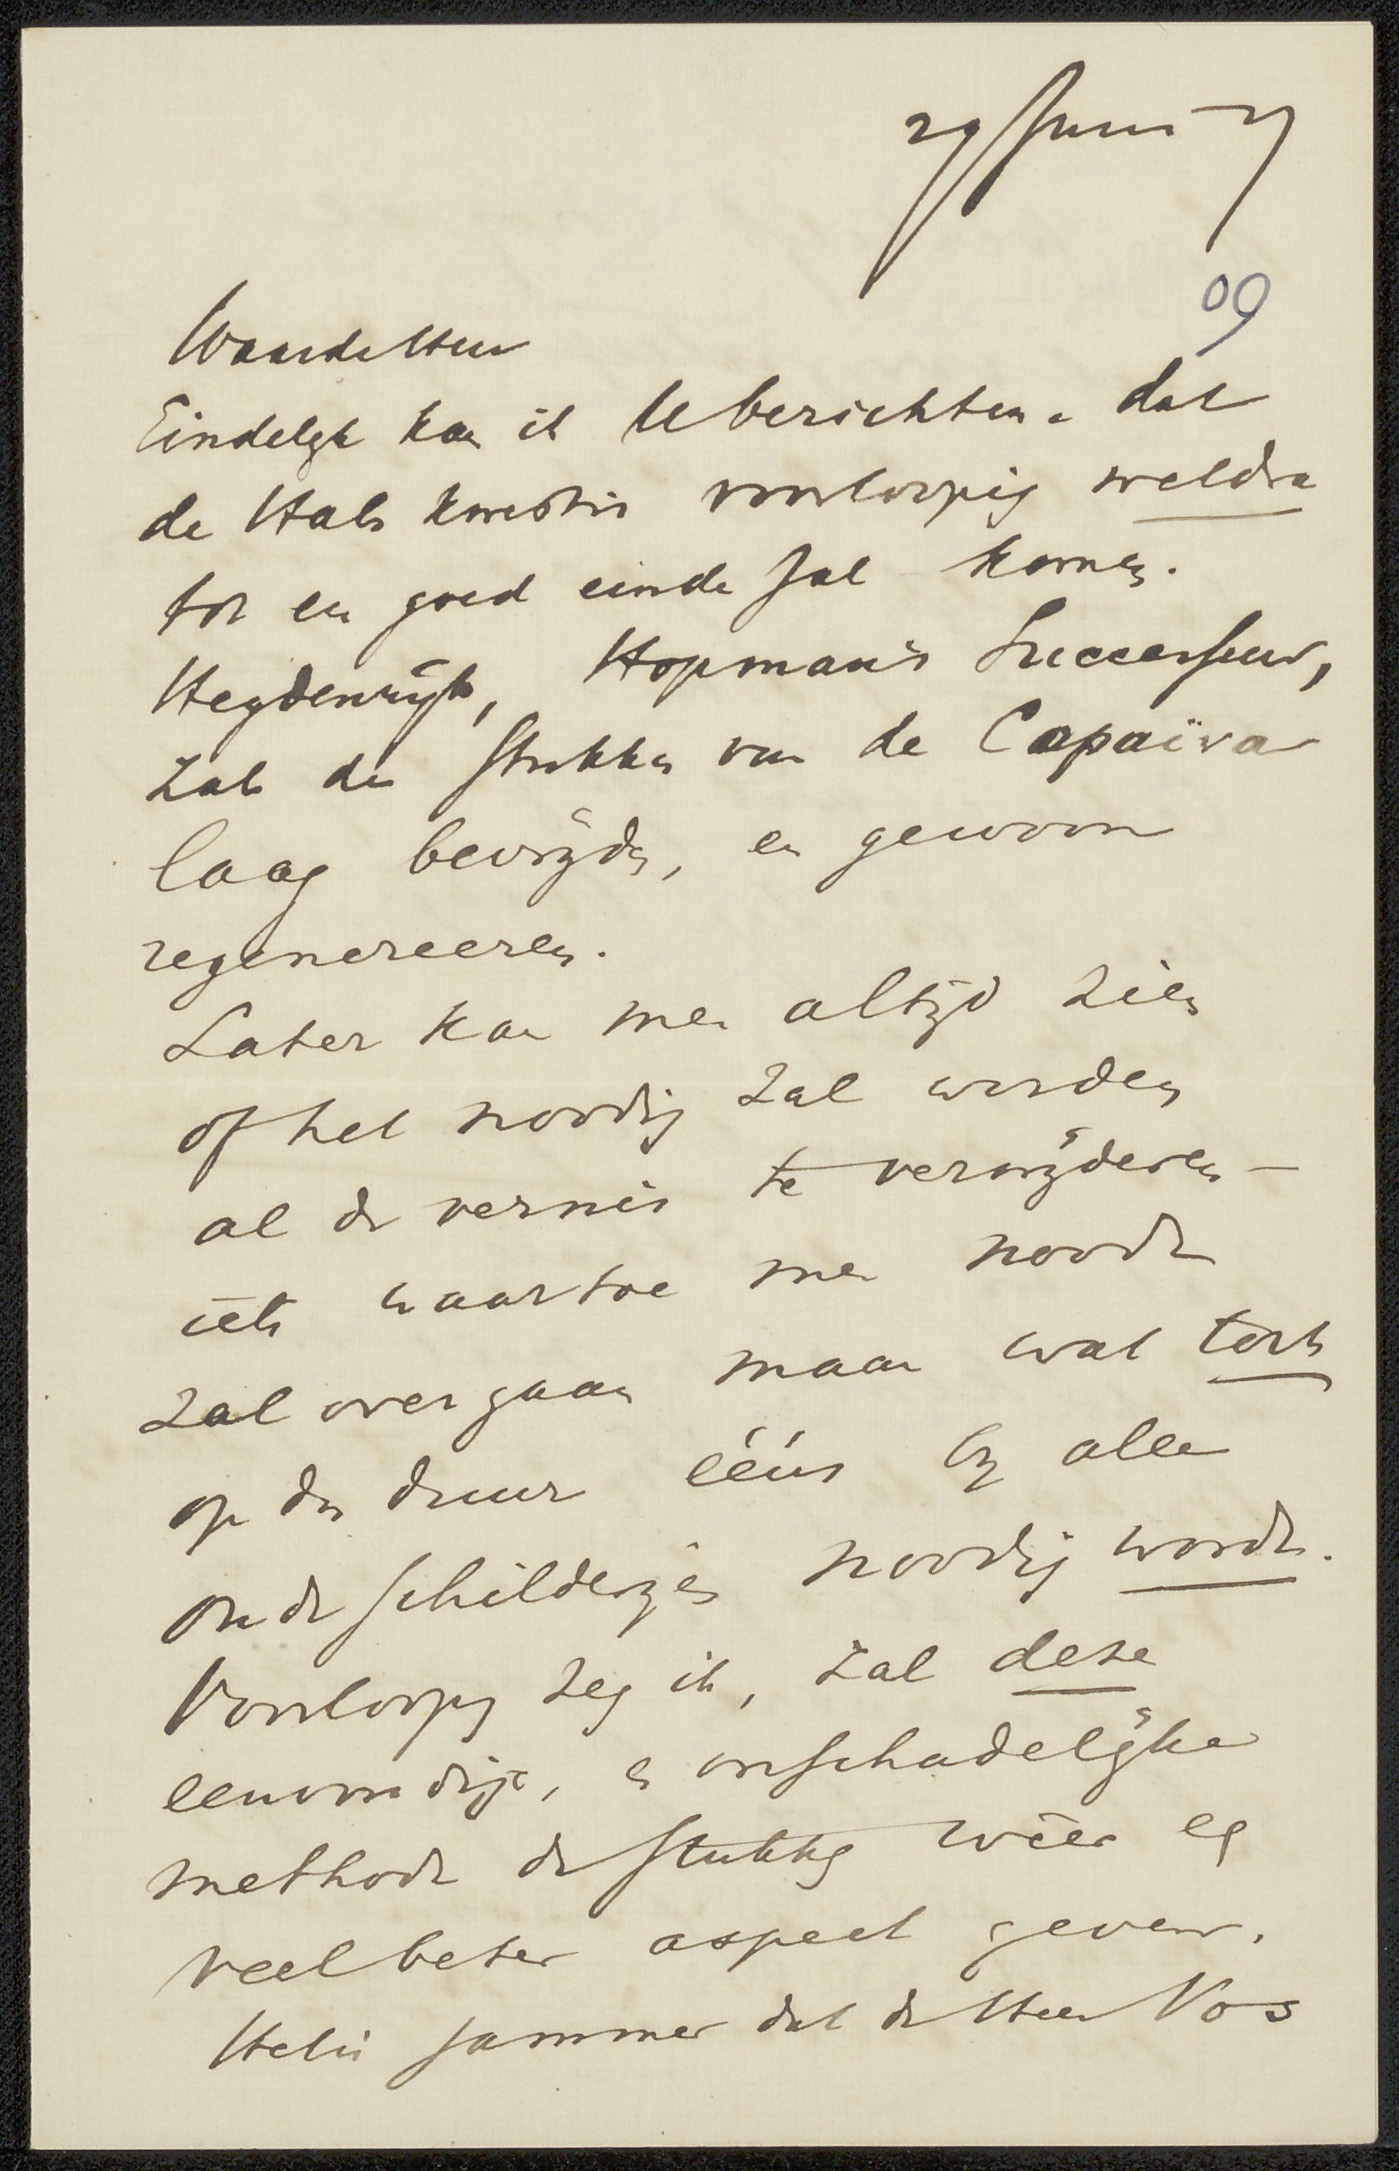 29 Juni 09
Waarde Heer
Eindelijk kan ik U berichten - dat
de Hals kwestie voorloopig weldra
tot een goed einde zal komen.
Heydenrijk, Hopman's Successeur,
zal de stukken van de Copaïva
laag bevrijden, en gewoon
regenereeren.
Later kan men altijd zien
of het noodig zal worden
al de vernis te verwijderen —
iets waartoe men noode
zal overgaan maar wat toch
op den duur ééns bij alle
oude schilderijen noodig wordt.
Voorloopig zeg ik, zal deze
eenvoudige, en onschadelijke
methode de stukken weer een
veel beter aspect geven.
Het is jammer dat de Heer Vos